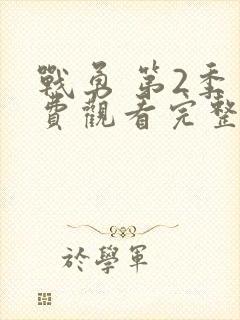 戰勇 第2季
費觀看完整
於學軍